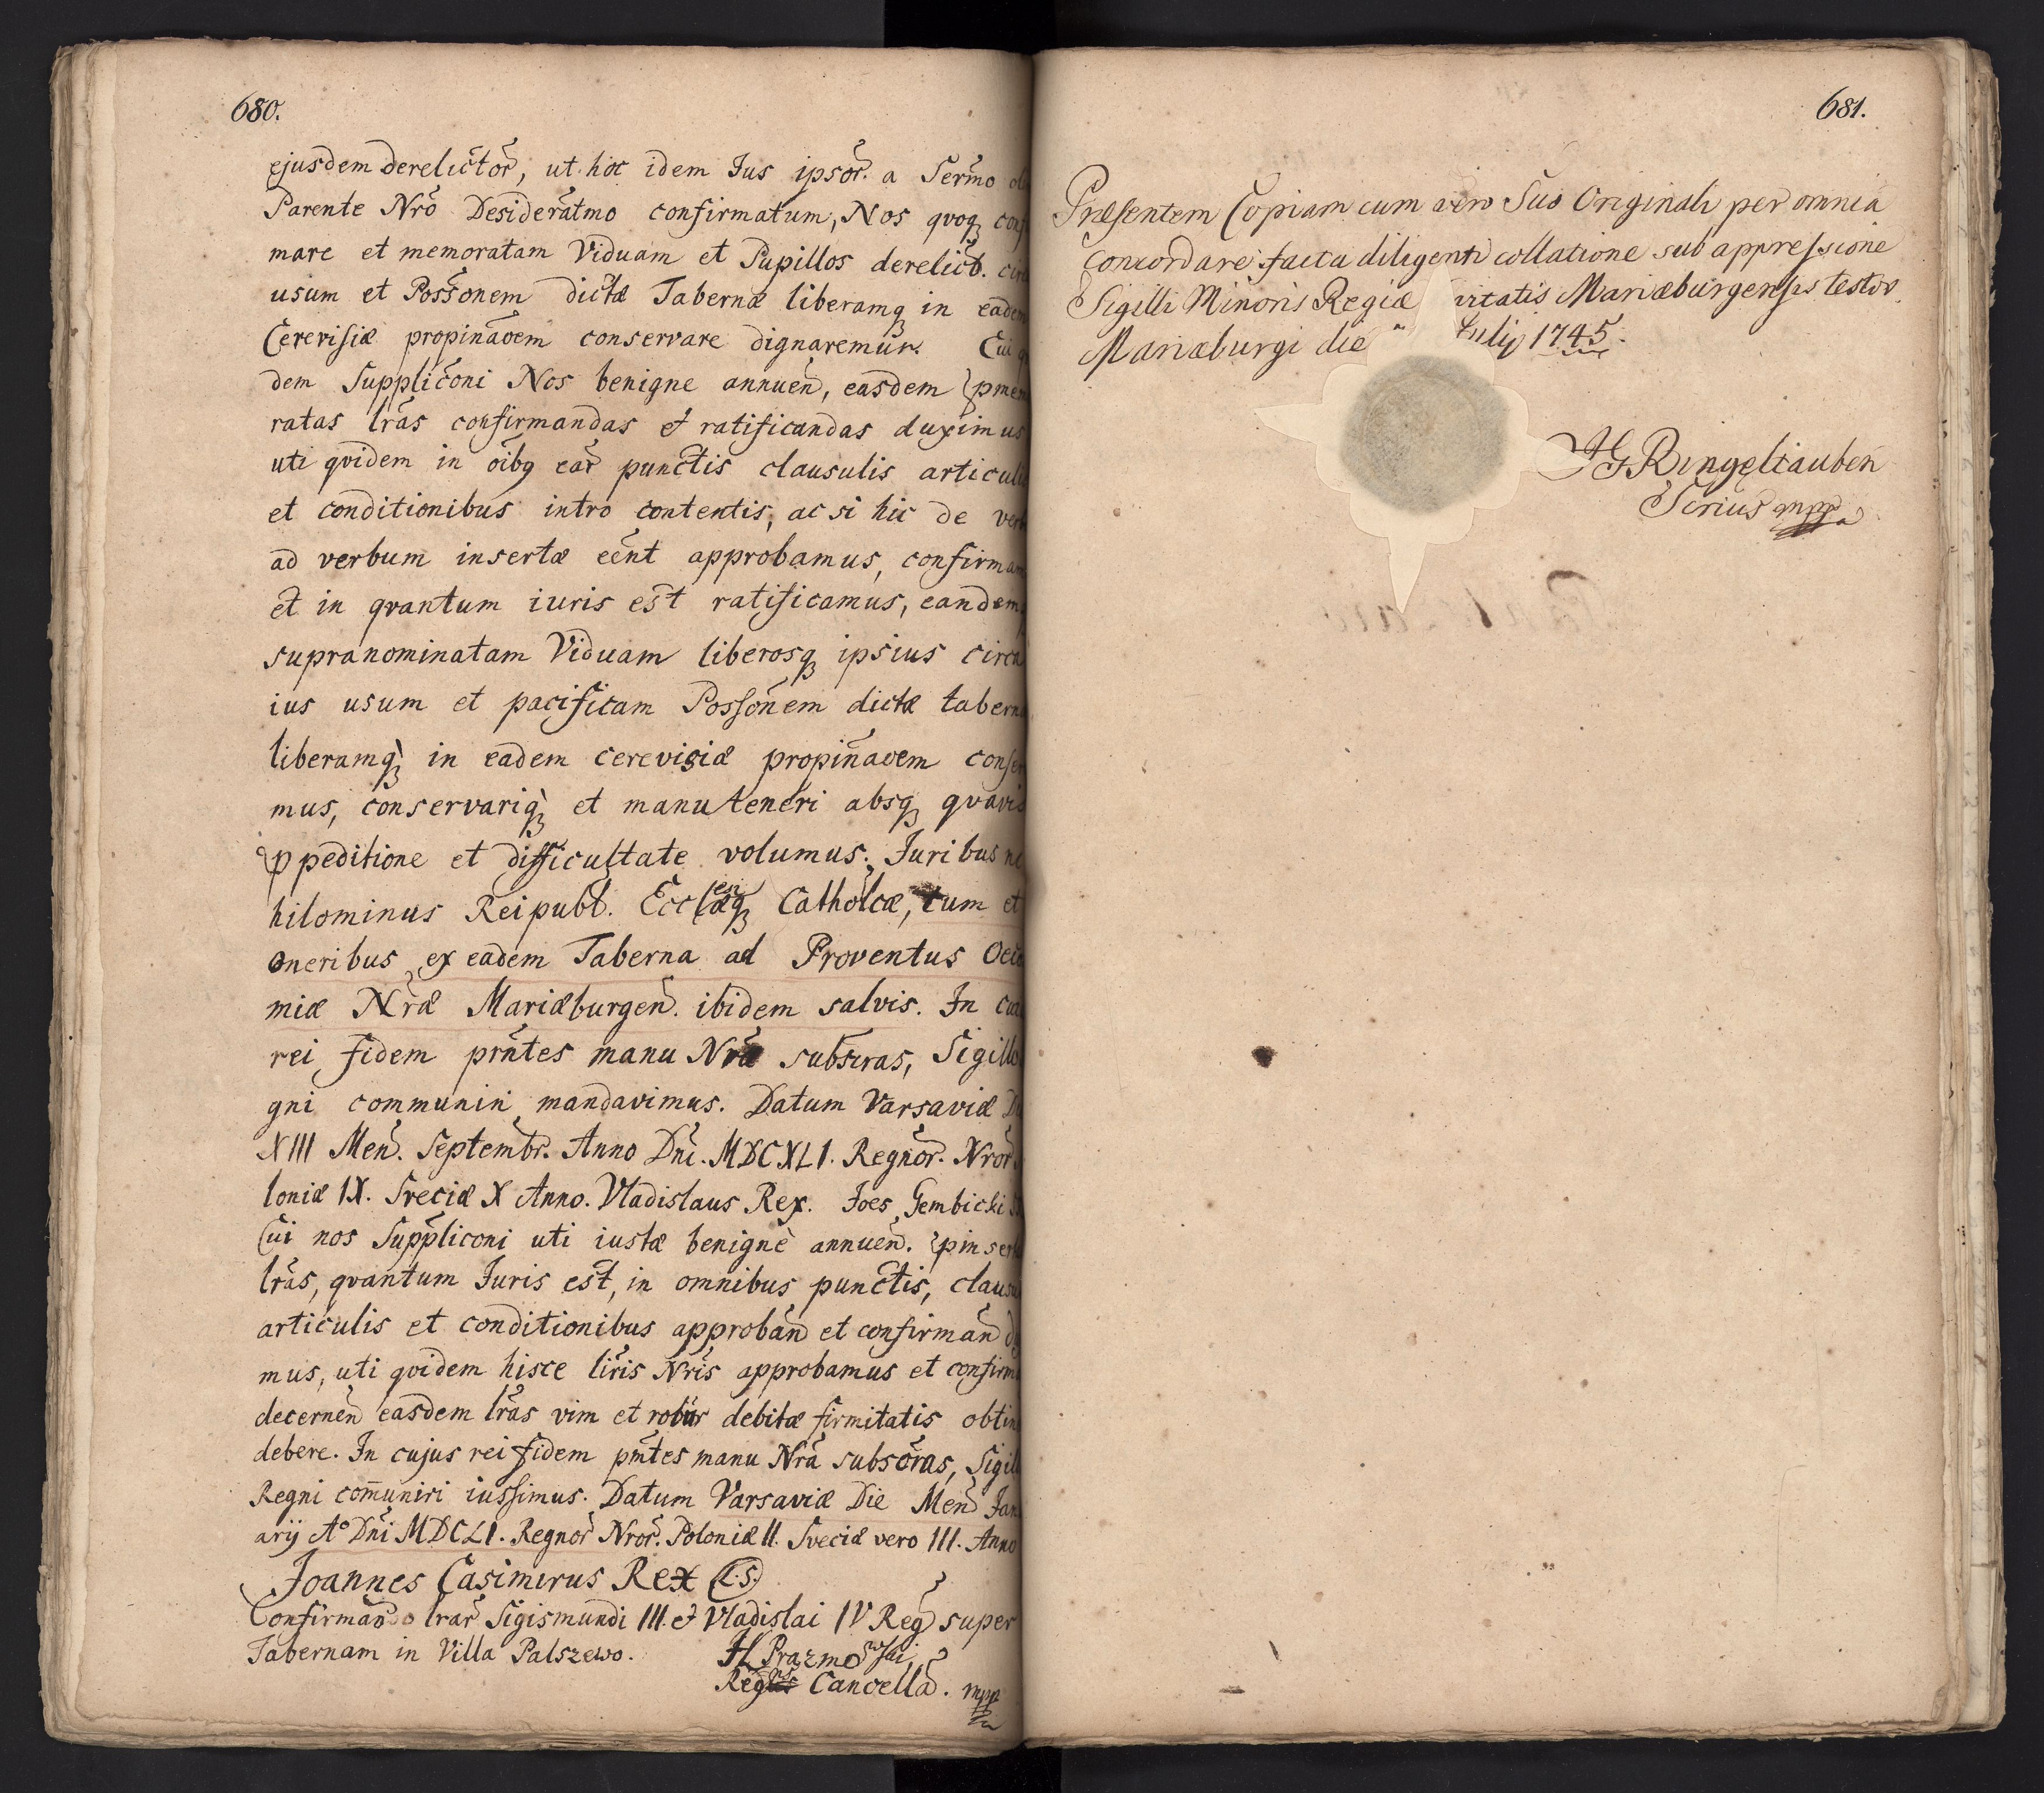 680.
ejusdem derelictor, ut hoc idem Jus ipsor. a Sermo
Parente Nro Desideratmo confirmatum, Nos qvoq
mare et memoratam Viduam et Pupillos derelict.
usum et Possonem dictæ Tabernæ liberamq in eadem
Cerevisiæ propinaoem conservare dignaremur. Cui
dem Supplicōni Nos benigne annuen, easdem
ratas lras confirmandas et ratificandas duximus
uti qvidem in oibq ear punctis clausulis articulis
et conditionibus intro contentis, ac si hic de
ad verbum insertæ eent approbamus,
et in qvantum iuris est ratificamus, eandem
supranominatam Viduam liberosq ipsius circa
ius usum et pacificam Possonem dictæ
liberamq in eadem cerevisiæ propinaoem
mus, conservariq et manuteneri absq qvavis
ppeditione et difficultate volumus. Juribus
hilominus Reipubl. Ecclesiæq Catholcæ, tum et
oneribus ex eadem Taberna ad Proventus
miæ Nræ Mariæburgen. ibidem salvis. In
rei fidem prntes manu Nra subscras,
gni communiri mandavimus. Datum Varsaviæ
XIII Men. Septembr. Anno Dni. MDCXLI. Regnor. Nror
loniæ IX. Sveciæ X Anno. Vladislaus Rex. Joes Gembicki
Cui nos Suppliconi uti iustæ benignè annuen.
lras, qvantum Juris est, in omnibus punctis,
articulis et conditionibus approban et confirman
mus, uti qvidem hisce liris Nris approbamus et
decernen easdem lras vim et robur debitæ firmitatis
debere. In cujus rei fidem pntes manu Nra subscras,
Regni com̄uniri iussimus. Datum Varsaviæ Die Men
arij Ao Dni MDCLI. Regnor Nror. Poloniæ II. Sveciæ vero III. Anno
Joannes Casimirus Rex (L.S.)
Confirmao lrar Sigismundi III. et Vladislai IV Reg super
Tabernam in Villa Palszewo.
Prazmowski
Cancella. mpp
681.
Præsentem Copiam cum vero Suo Originali per omnia
concordare facta diligenti collatione sub appressione
Sigilli Minoris Regiæ vitatis Mariæburgensis testor.
Mariæburgi die Julij 1745.
Ringeltauben
Scrius mpp